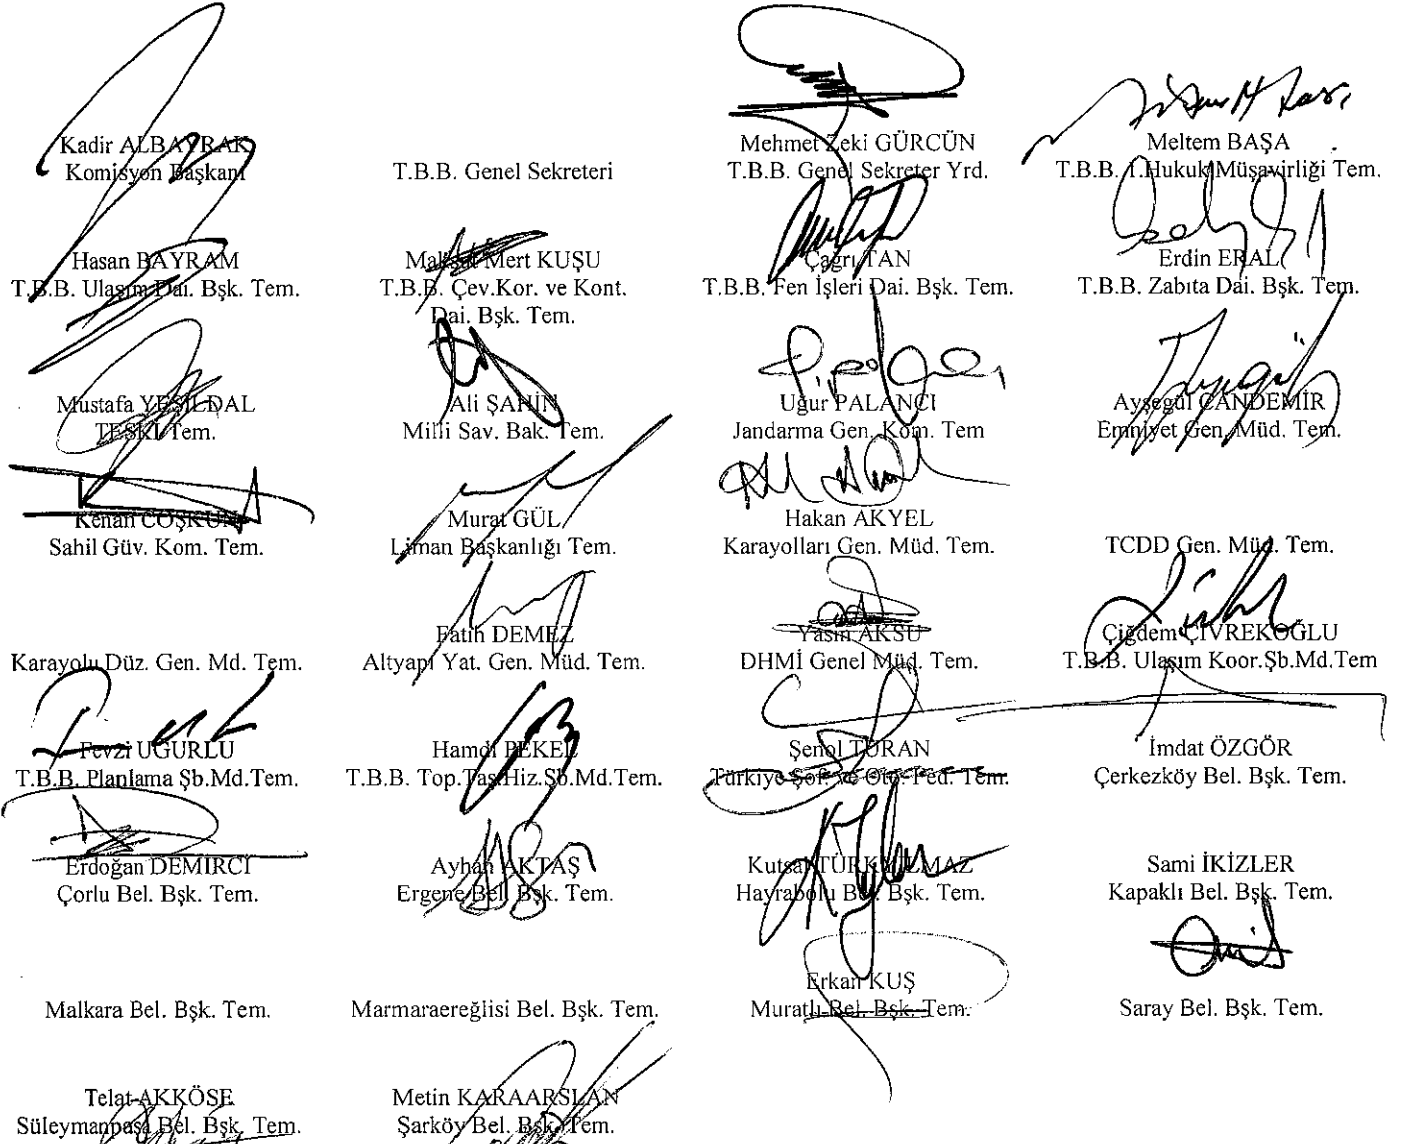 Kadir ALBAYRAK
Komisyon Başkanı
T.B.B. Genel Sekreteri
Mehmet Zeki GÜRCÜN
T.B.B. Genel Sekreter Yrd.
Meltem BAŞA
T.B.B. 1.Hukuk Müşavirliği Tem.
Hasan BAYRAM
T.B.B. Ulaşım Dai. Bşk. Tem.
Maksut Mert KUŞU
T.B.B. Çev.Kor. ve Kont.
Dai. Bşk. Tem.
Çağrı TAN
T.B.B. Fen İşleri Dai. Bşk. Tem.
Erdin ERAL
T.B.B. Zabıta Dai. Bşk. Tem.
Mustafa YEŞİLDAL
TESKİ Tem.
Ali ŞAHİN
Milli Sav. Bak. Tem.
Uğur PALANCI
Jandarma Gen. Kom. Tem
Ayşegül CANDEMİR
Emniyet Gen. Müd. Tem.
Kenan COŞKUN
Sahil Güv. Kom. Tem.
Murat GÜL
Liman Başkanlığı Tem.
Hakan AKYEL
Karayolları Gen. Müd. Tem.
TCDD Gen. Müd. Tem.
Karayolu Düz. Gen. Md. Tem.
Fatih DEMEZ
Altyapı Yat. Gen. Müd. Tem.
Yasin AKSU
DHMİ Genel Müd. Tem.
Çiğdem ÇİVREKOĞLU
T.B.B. Ulaşım Koor.Şb.Md.Tem
Fevzi UĞURLU
T.B.B. Planlama Şb.Md.Tem.
Hamdi PEKEL
T.B.B. Top.Taş.Hiz.Şb.Md.Tem.
Şenol TURAN
Türkiye Şof. ve Oto. Fed. Tem.
İmdat ÖZGÖR
Çerkezköy Bel. Bşk. Tem.
Erdoğan DEMİRCİ
Çorlu Bel. Bşk. Tem.
Ayhan AKTAŞ
Ergene Bel. Bşk. Tem.
Kutsal TÜRKYILMAZ
Hayrabolu Bel. Bşk. Tem.
Sami İKİZLER
Kapaklı Bel. Bşk. Tem.
Malkara Bel. Bşk. Tem.
Marmaraereğlisi Bel. Bşk. Tem.
Erkan KUŞ
Muratlı Bel. Bşk. Tem.
Saray Bel. Bşk. Tem.
Telat AKKÖSE
Süleymanpaşa Bel. Bşk. Tem.
Metin KARAARSLAN
Şarköy Bel. Bşk. Tem.